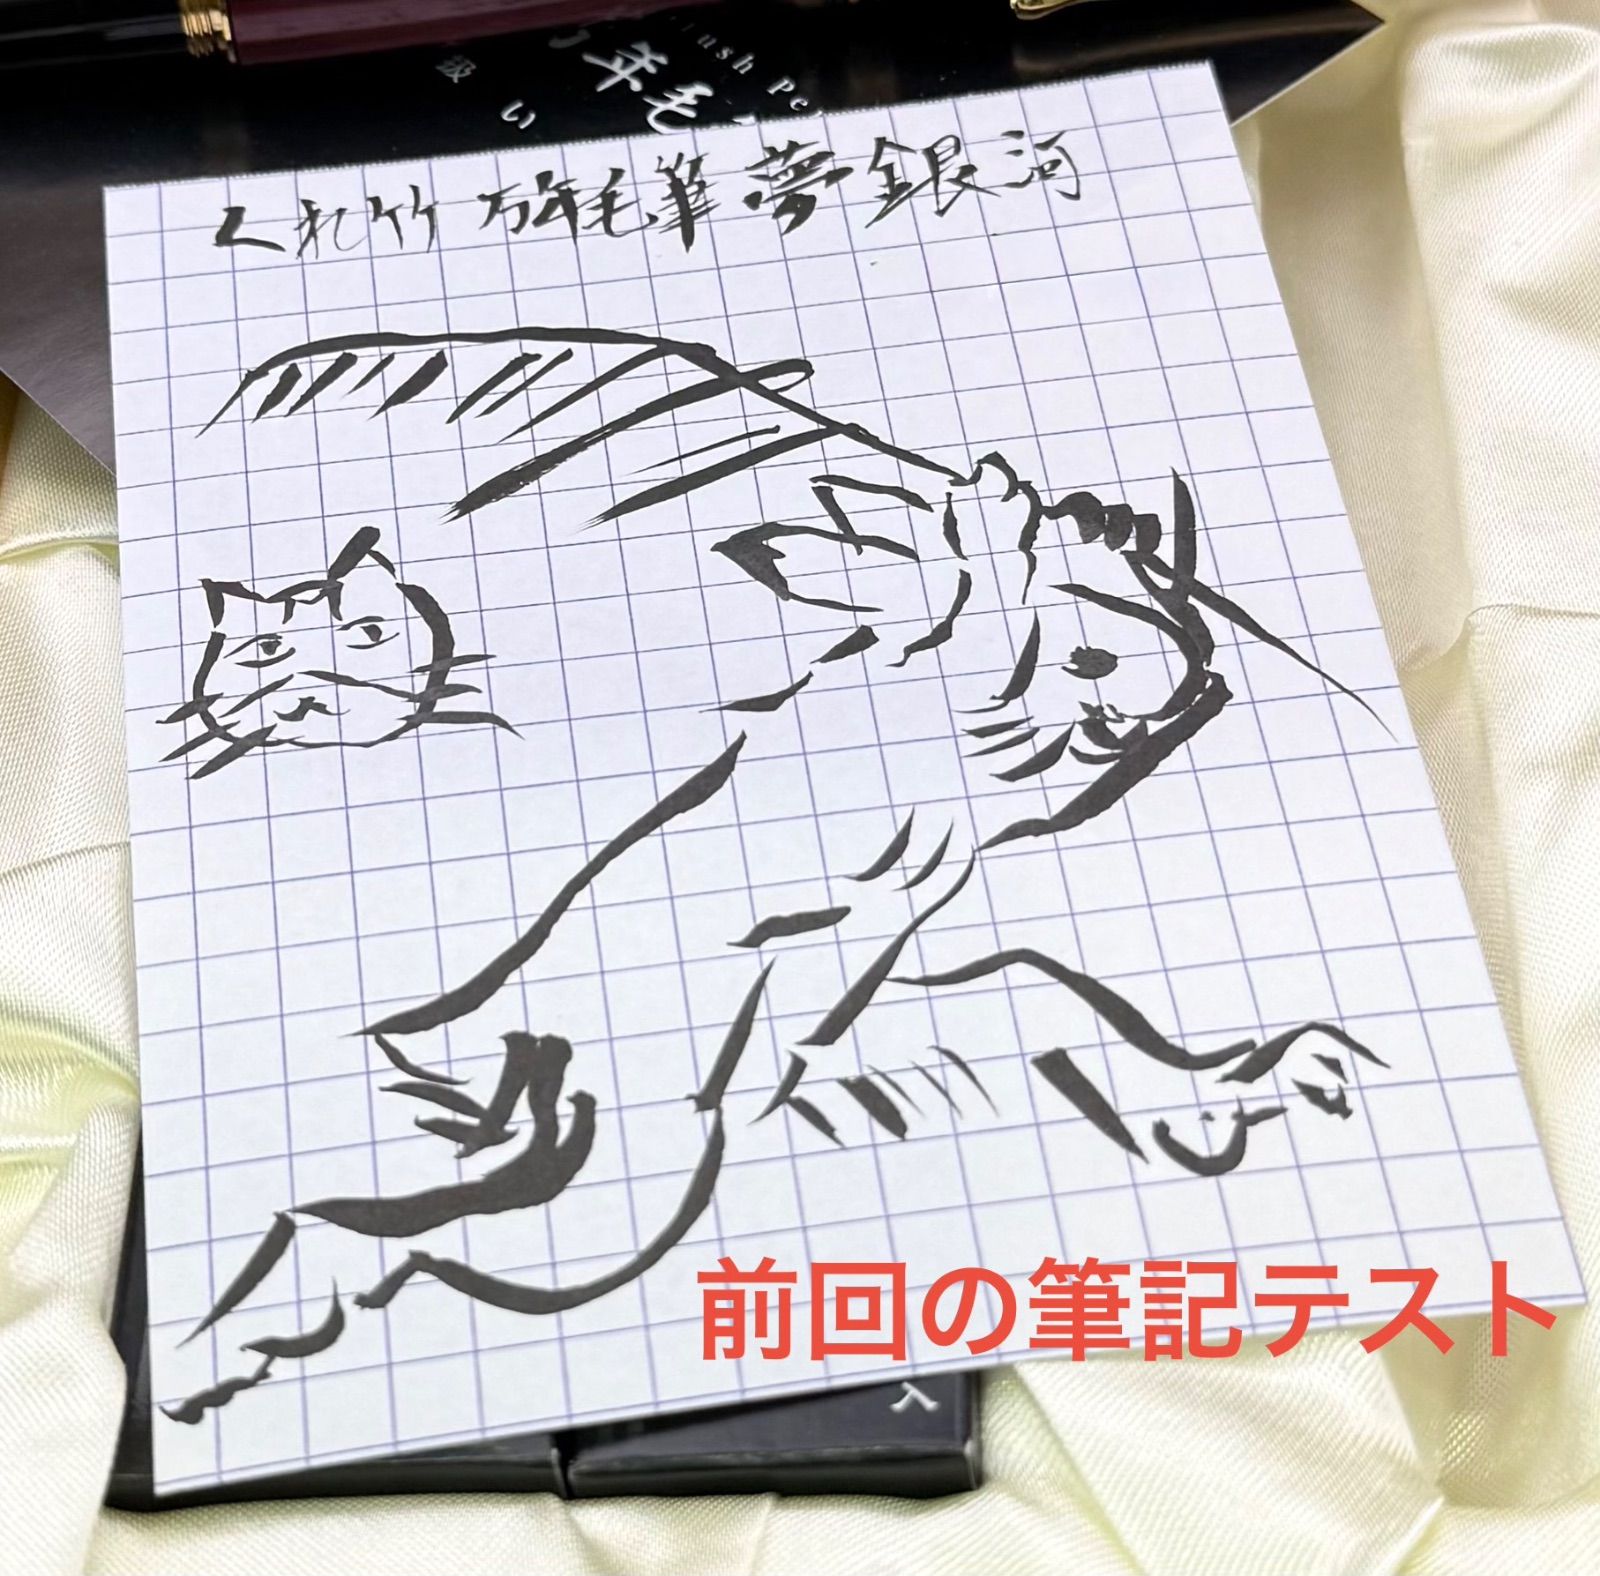 lush Pe
年毛
級い
くれ竹 万年毛筆 夢銀河
前回の筆記テスト
入